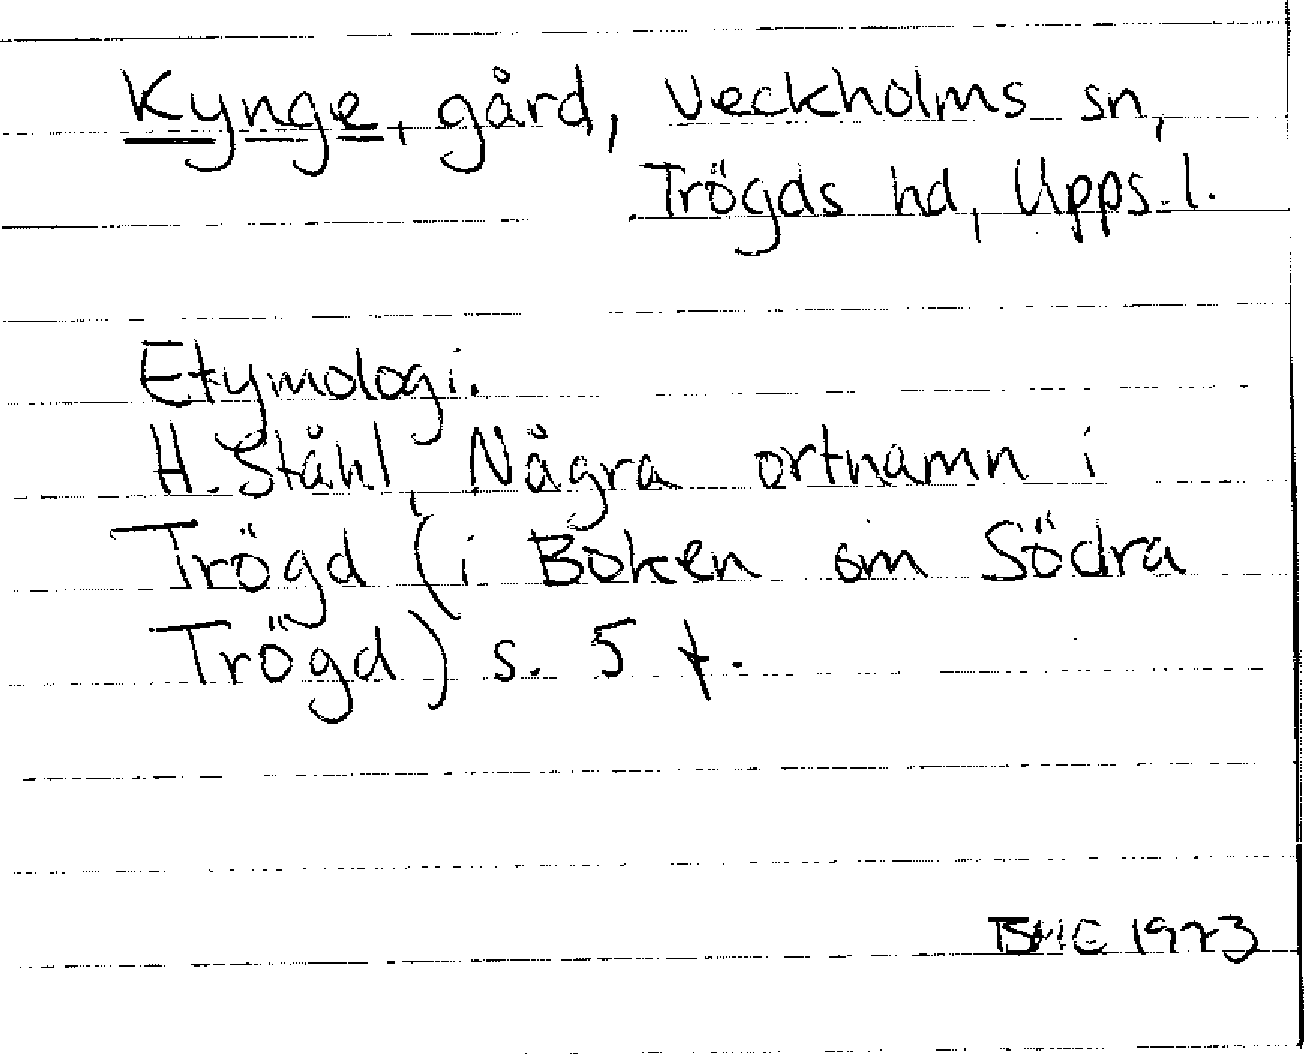 Kynge, gård, Veckholms sn,
Trögds hd, Upps. l.
Etymologi.
H. Ståhl, Några ortnamn i
Trögd (i Boken om Södra
Trögd) s. 5 f.
1973